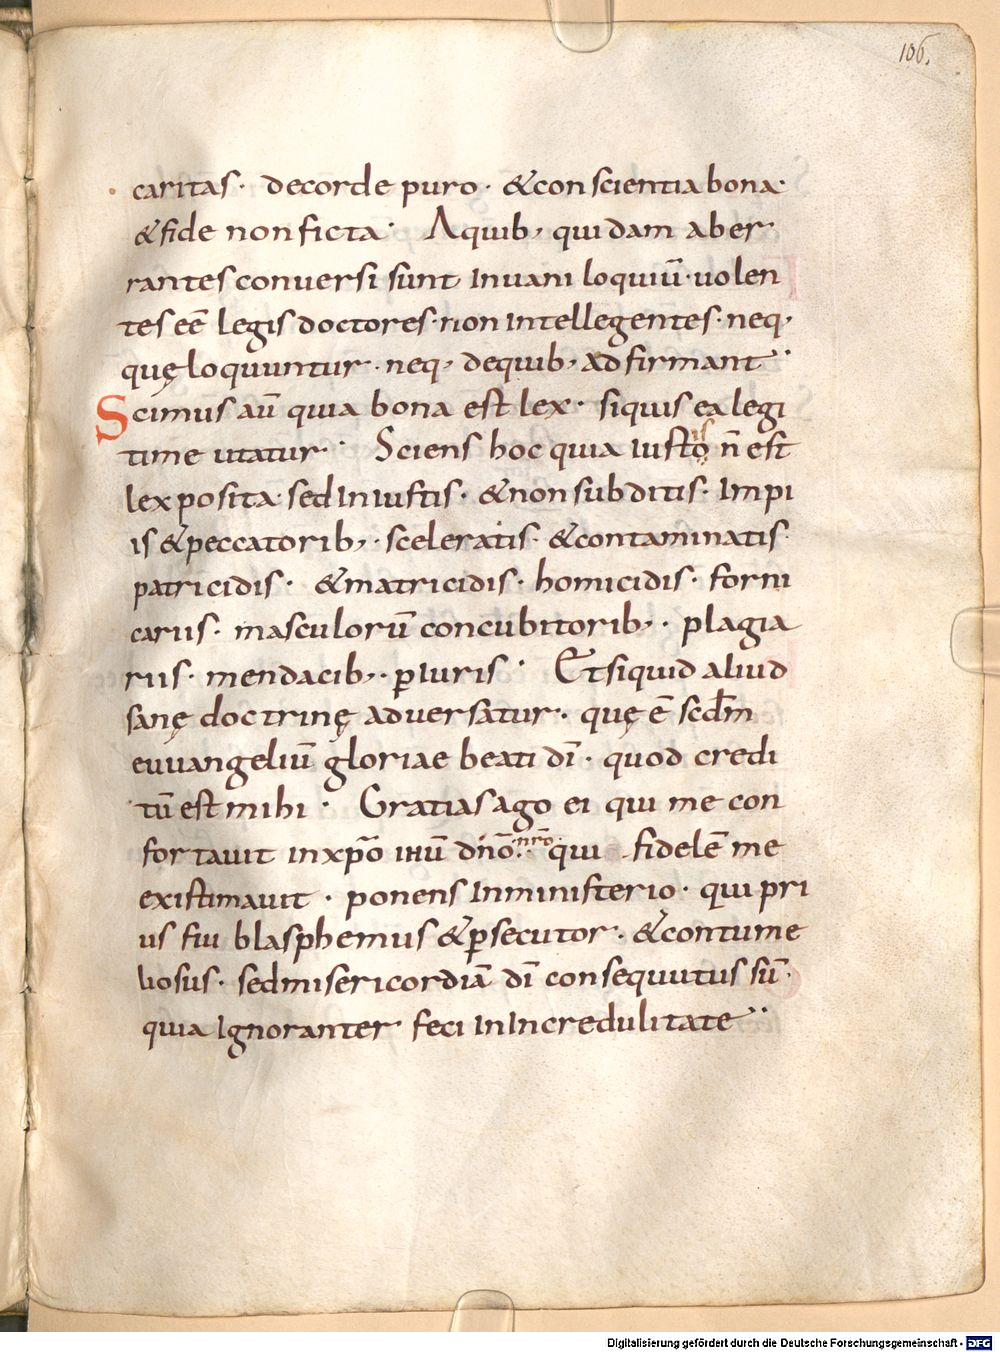 106.
caritas· decorde puro· &conscientia bona·
&fide nonficta· Aquib; quidam aber
rantes conuersi sunt Inuani loquiū·uolen
tes eē legis doctores·non Intellegentes·neq;
quę loquuntur·neq; dequib; adfirmant··
Scimus aū quia bona est lex· siquis ea legi
time utatur· Sciens hoc quia iustois n̄ est
lex posita sed Iniustis· &non subditis· Impi
is &peccatorib;· sceleratis· &contaminatis·
patricidis· &matricidis· homicidis· forni
cariis· masculorū concubitorib;· plagia
riis· mendacib;· ꝑiuris· Et siquid aliud
sanę doctrinę aduersatur· quę ē scdm̄
euuangeliū gloriae beati dī· quod credi
tū est mihi· Gratias ago ei qui me con
fortauit in xp̄o ihū dn̄o nr̄o qui fidelē me
existimauit· ponens Inministerio· qui pri
us fui blasphemus &ꝑsecutor· &contume
liosus· sed misericordiā dī consequutus sū·
quia Ignoranter feci In Incredulitate··
Digitalisierung gefördert durch die Deutsche Forschungsgemeinschaft - DFG